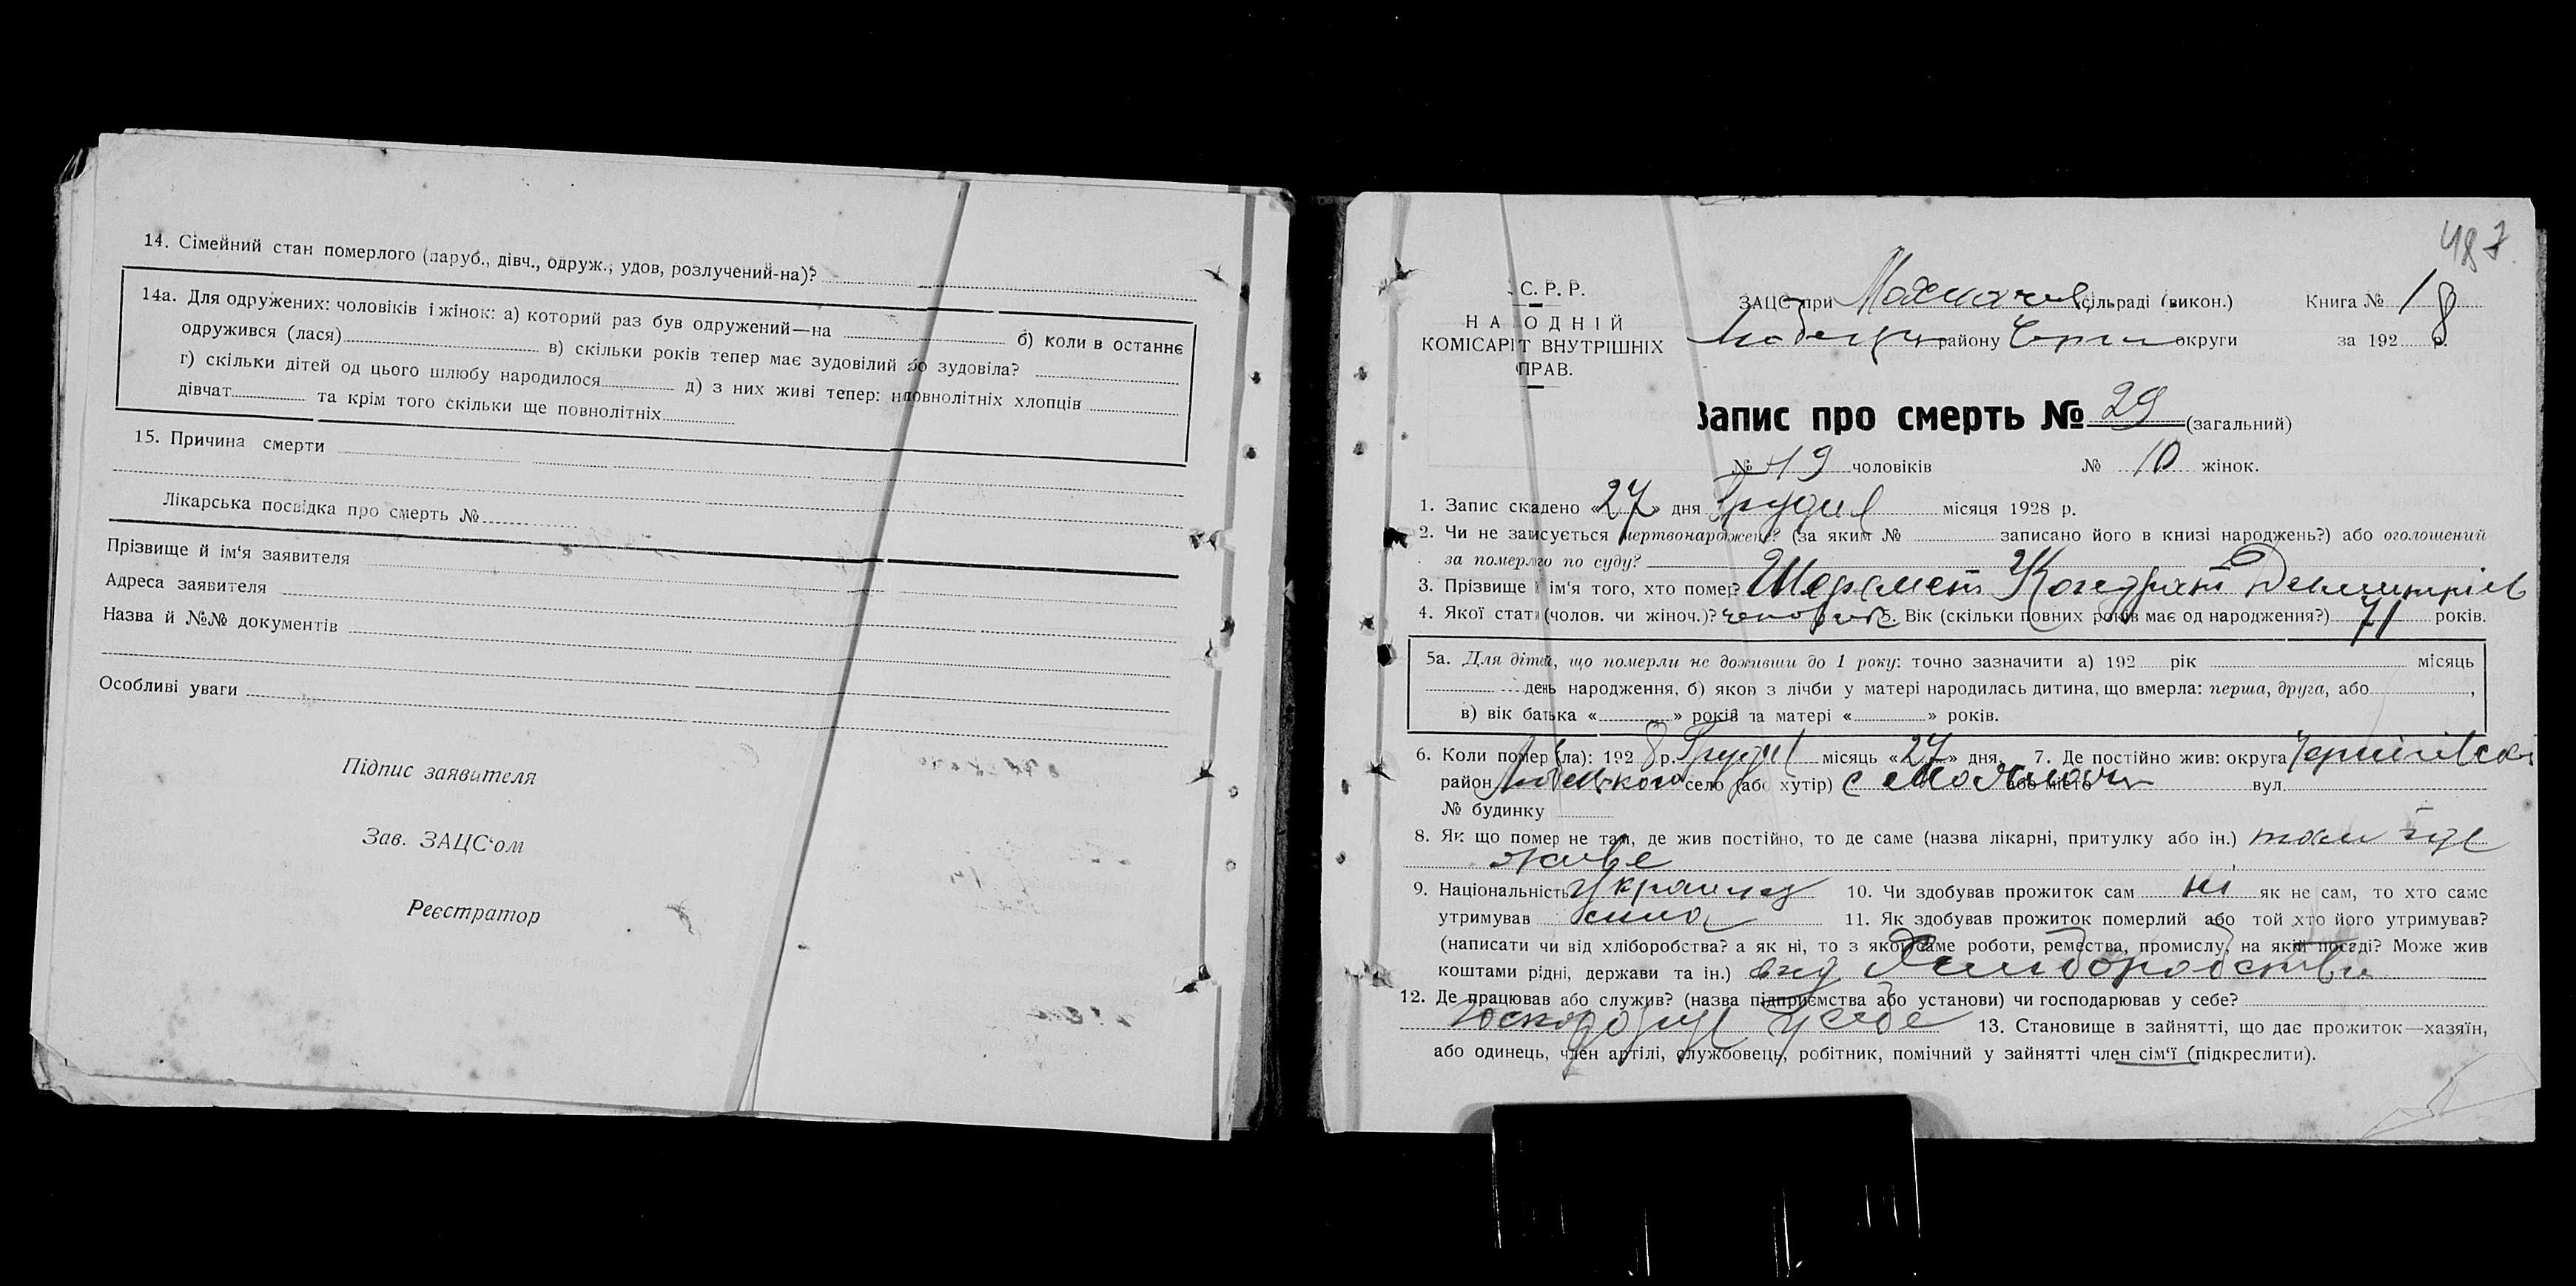 14. Сімейний стан померлого (паруб., дівч., одруж., удов, розлучений-на)?
14а. Для одружених: чоловіків і жінок: а) которий раз був одружений—на б) коли в останнє
одружився (лася) в) скільки років тепер має зудовілий або зудовіла?
г) скільки дітей од цього шлюбу народилося д) з них живі тепер: неповнолітніх хлопців
дівчат та крім того скільки ще повнолітніх
15. Причина смерти
Лікарська посвідка про смерть №
Прізвище й ім‘я заявителя
Адреса заявителя
Назва й №№ документів
Особливі уваги
Підпис заявителя
Зав. ЗАЦС‘ом
Реєстратор
487
С. Р. Р.
НА ОДНІЙ
КОМІСАРІТ ВНУТРІШНІХ
ПРАВ.
ЗАЦС при сільраді (викон.) Книга № 1
району Черни округи за 1928 р.
Запис про смерть № 29 (загальний)
№ 19 чоловіків № 10 жінок.
1. Запис складено «27» дня Грудня місяця 1928 р.
2. Чи не записується мертвонароджене? (за яким № записано його в книзі народжень?) або оголошений
за померлого по суду?
3. Прізвище й ім‘я того, хто помер? Шеремет Кондрат Демитріев
4. Якої статі (чолов. чи жіноч.)? человік 5. Вік (скільки повних років має од народження?) 71 років.
5а. Для дітей, що померли не доживши до 1 року: точно зазначити а) 192 рік місяць
день народження, б) якою з лічби у матері народилась дитина, що вмерла: перша, друга, або ,
в) вік батька « » років та матері « » років.
6. Коли помер (ла): 1928 р. Грудня місяць «27» дня. 7. Де постійно жив: округа Чернігівська
район Любецького село (або хутір) с або місто вул.
№ будинку
8. Як що помер не там, де жив постійно, то де саме (назва лікарні, притулку або ін.) там где
живе
9. Національність українец 10. Чи здобував прожиток сам ні як не сам, то хто саме
утримував 11. Як здобував прожиток померлий або той хто його утримував?
(написати чи від хліборобства? а як ні, то з якої саме роботи, ремества, промислу, на якій посаді? Може жив
коштами рідні, держави та ін.) від Хлиборобства
12. Де працював або служив? (назва підприємства або установи) чи господарював у себе?
у себе 13. Становище в зайнятті, що дає прожиток—хазяїн,
або одинець, член артілі, службовець, робітник, помічний у зайнятті член сім‘ї (підкреслити).